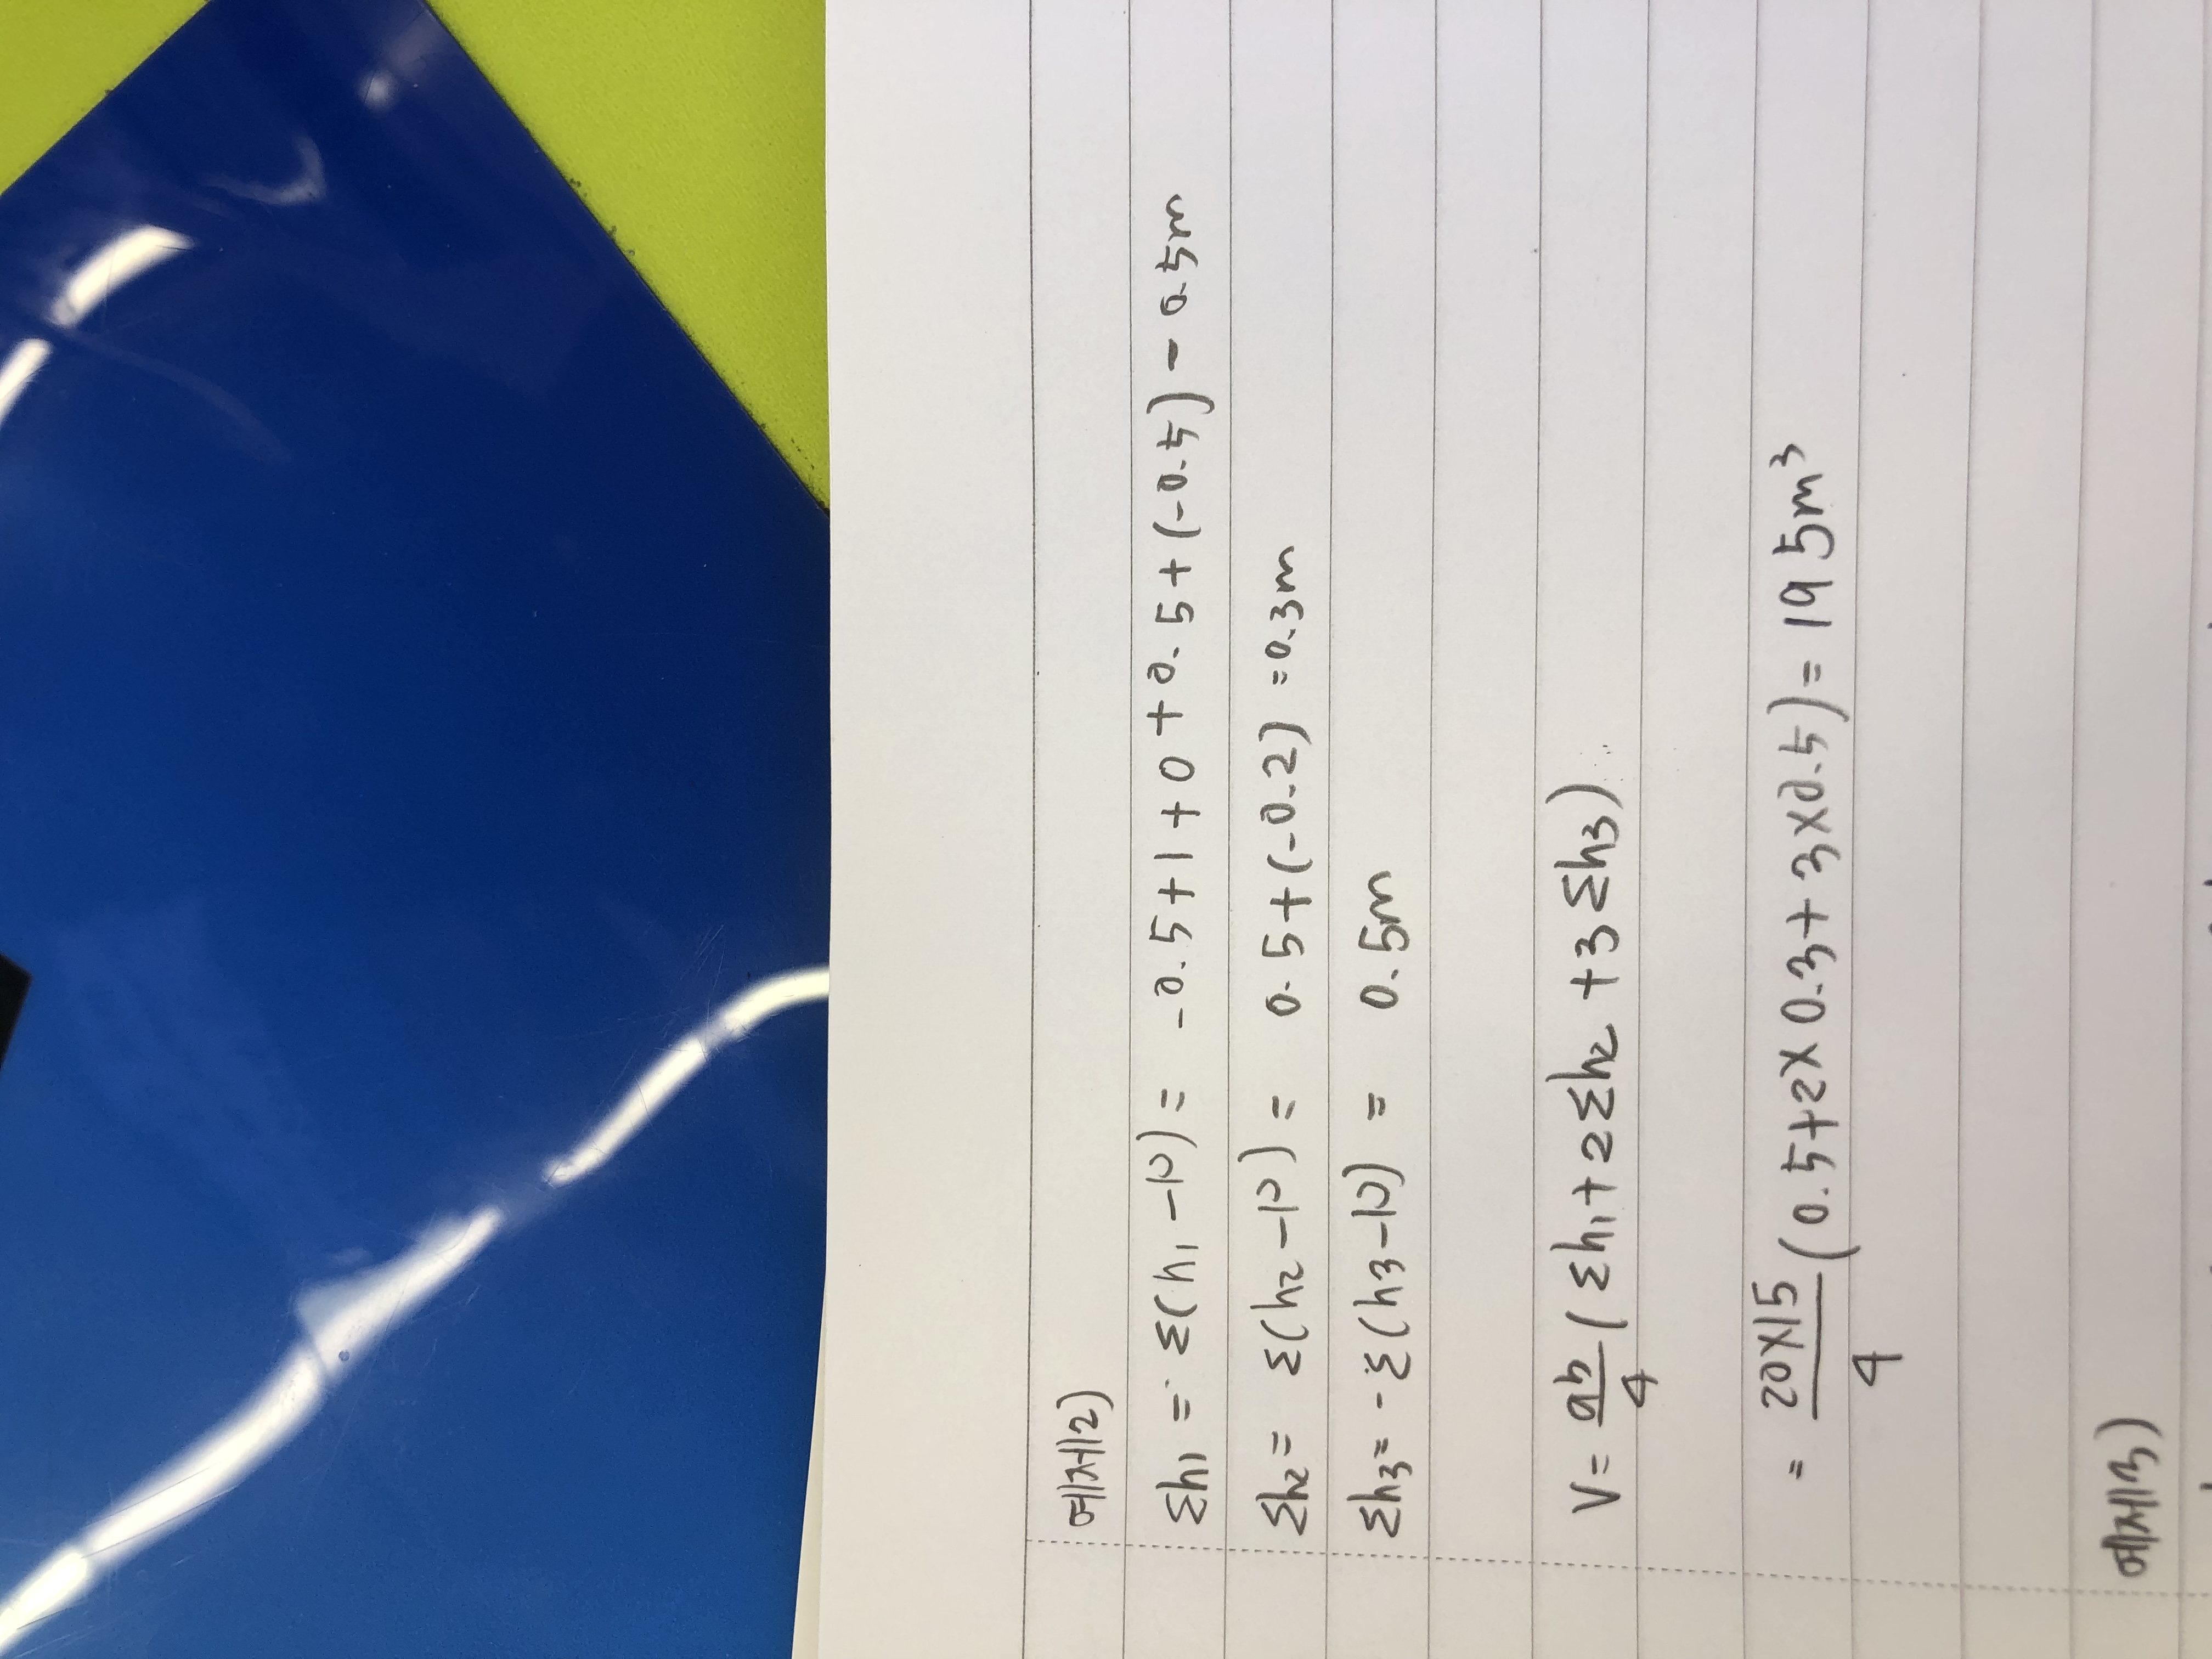 예제2)
Σh₁ = Σ(h₁-10) = -0.5+1+0+0.5+(-0.5) - 0.5m
Σh₂ = Σ(h₂-10) = 0.5+(-0.2) = 0.3m
Σh₃ = -Σ(h₃-10) = 0.5m
V = ab/4 (Σh₁+2Σh₂+3Σh₃)
= 20×15/4 (0.5+2×0.3+3×0.5) = 195m³
예제3)